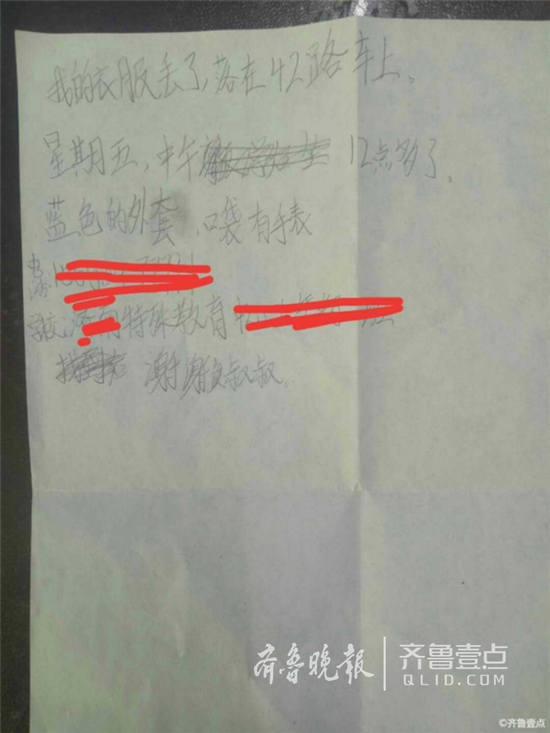 我的衣服丢了,落在42路车上。
星期五,中午 12点多了。
蓝色的外套,口袋有手表
电话
学校:济南特殊教育
谢谢 叔叔。
齐鲁晚报 齐鲁壹点
QLID.COM
©齐鲁壹点